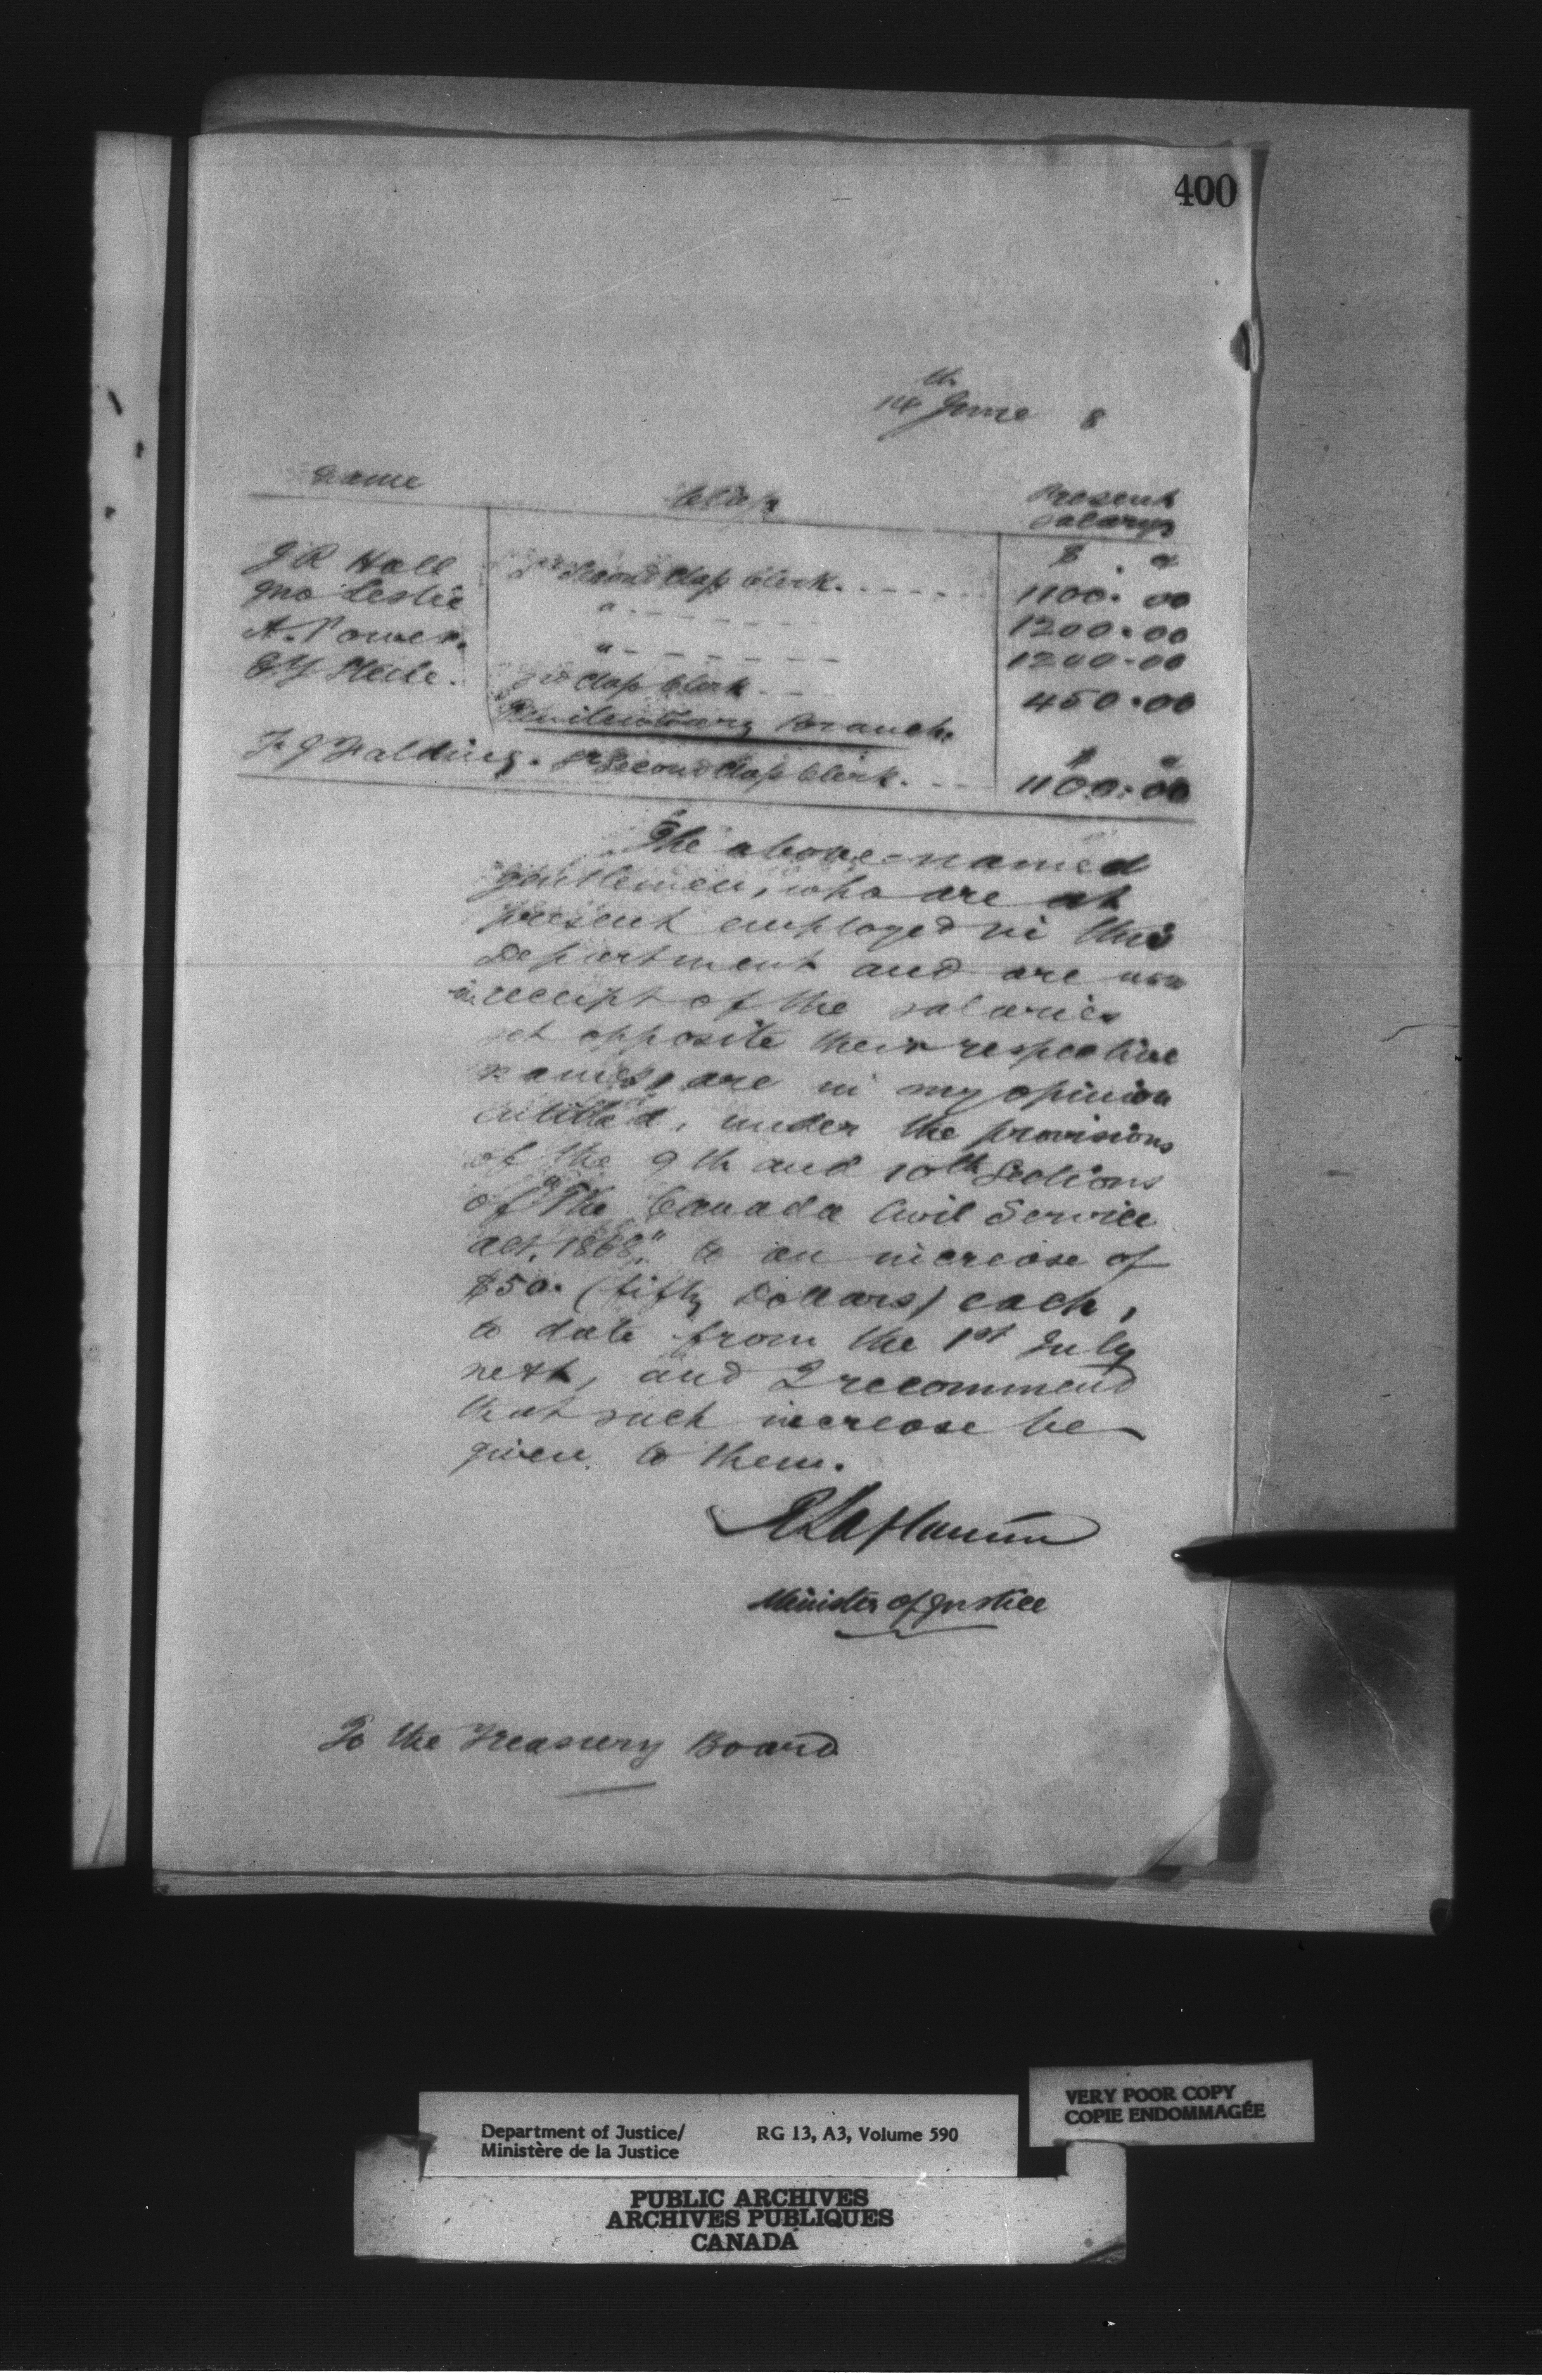 400
14th June 8
Name Class Present
Salary
$ c
J R Hall Jr Second Class Clerk. 1100. 00
Jno Leslie " 1200. 00
A. Power. " 1200. 00
Class Clerk 450. 00
Penitentiary Branch.
$ c
F J Falding. Jr Second Class Clerk. 1100. 00
The above-named
gentlemen, who are at
present employed in this
Department and are now
in receipt of the salaries
set opposite their respective
names, are in my opinion
entitled, under the provisions
of the 9th and 10th Sections
of "The Canada Civil Service
Act, 1868", to an increase of
$50. (fifty Dollars) each,
to date from the 1st July
next, and I recommend
that such increase be
given to them.
R Laflamme
Minister of Justice
To the Treasury Board
VERY POOR COPY
COPIE ENDOMMAGÉE
Department of Justice/ RG 13, A3, Volume 590
Ministère de la Justice
PUBLIC ARCHIVES
ARCHIVES PUBLIQUES
CANADA